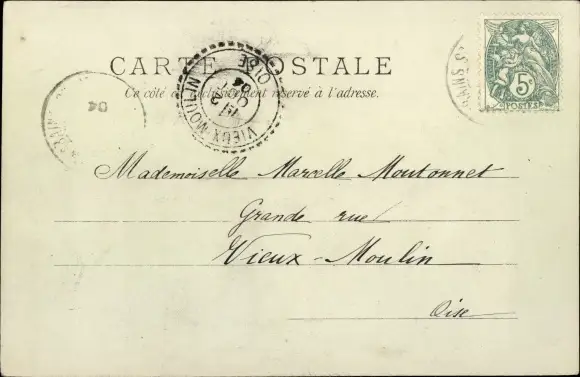 CARTE POSTALE
Ce côté est exclusivement réservé à l'adresse.
VIEUX-MOULIN
OISE
04
04
5
POSTES
Mademoiselle Marcelle Moutonnet
Grande rue
Vieux-Moulin
Oise